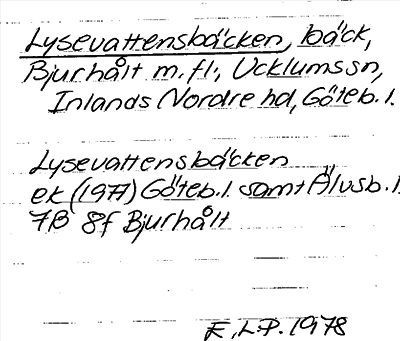 Lysevattensbäcken, bäck,
Bjurhålt m.fl., Ucklums sn,
Inlands Nordre hd, Göteb. l.
Lysevattensbäcken
ek (1977) Göteb. l. samt Älvsb. l.
7B 8f Bjurhålt
E, L.P. 1978